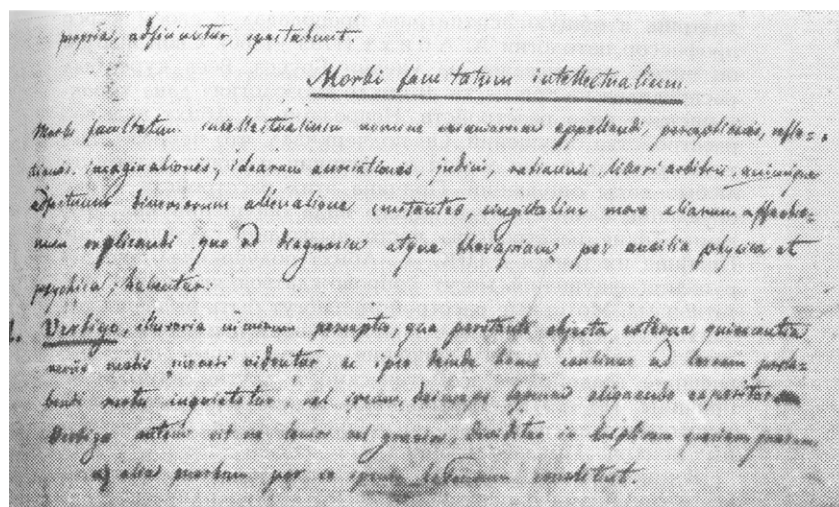 propria, adficiuntur, spectabunt.
Morbi facultatum intellectualium
Morbi facultatum intellectualium nomine appellandi, perceptionis, refle=
xionis, imaginationis, idearum associationis, judicii, ratiocinii, liberi arbitrii, animique
adfectuum diversorum alienatione constantes, singillatim more aliarum affectio=
num explicandi quo ad diagnosin atque therapiam per auxilia physica et
psychica, habentur:
1. Vertigo, illusoria nimirum perceptio, qua objecta externa quiescentia
variis motis moveri videntur, ac ipse deinde homo continuo ad
motus inquietetur, vel ipsum,
Vertigo autem sit vel levior vel gravior, dividitur in speciem
a) alia morbum per se constituit.